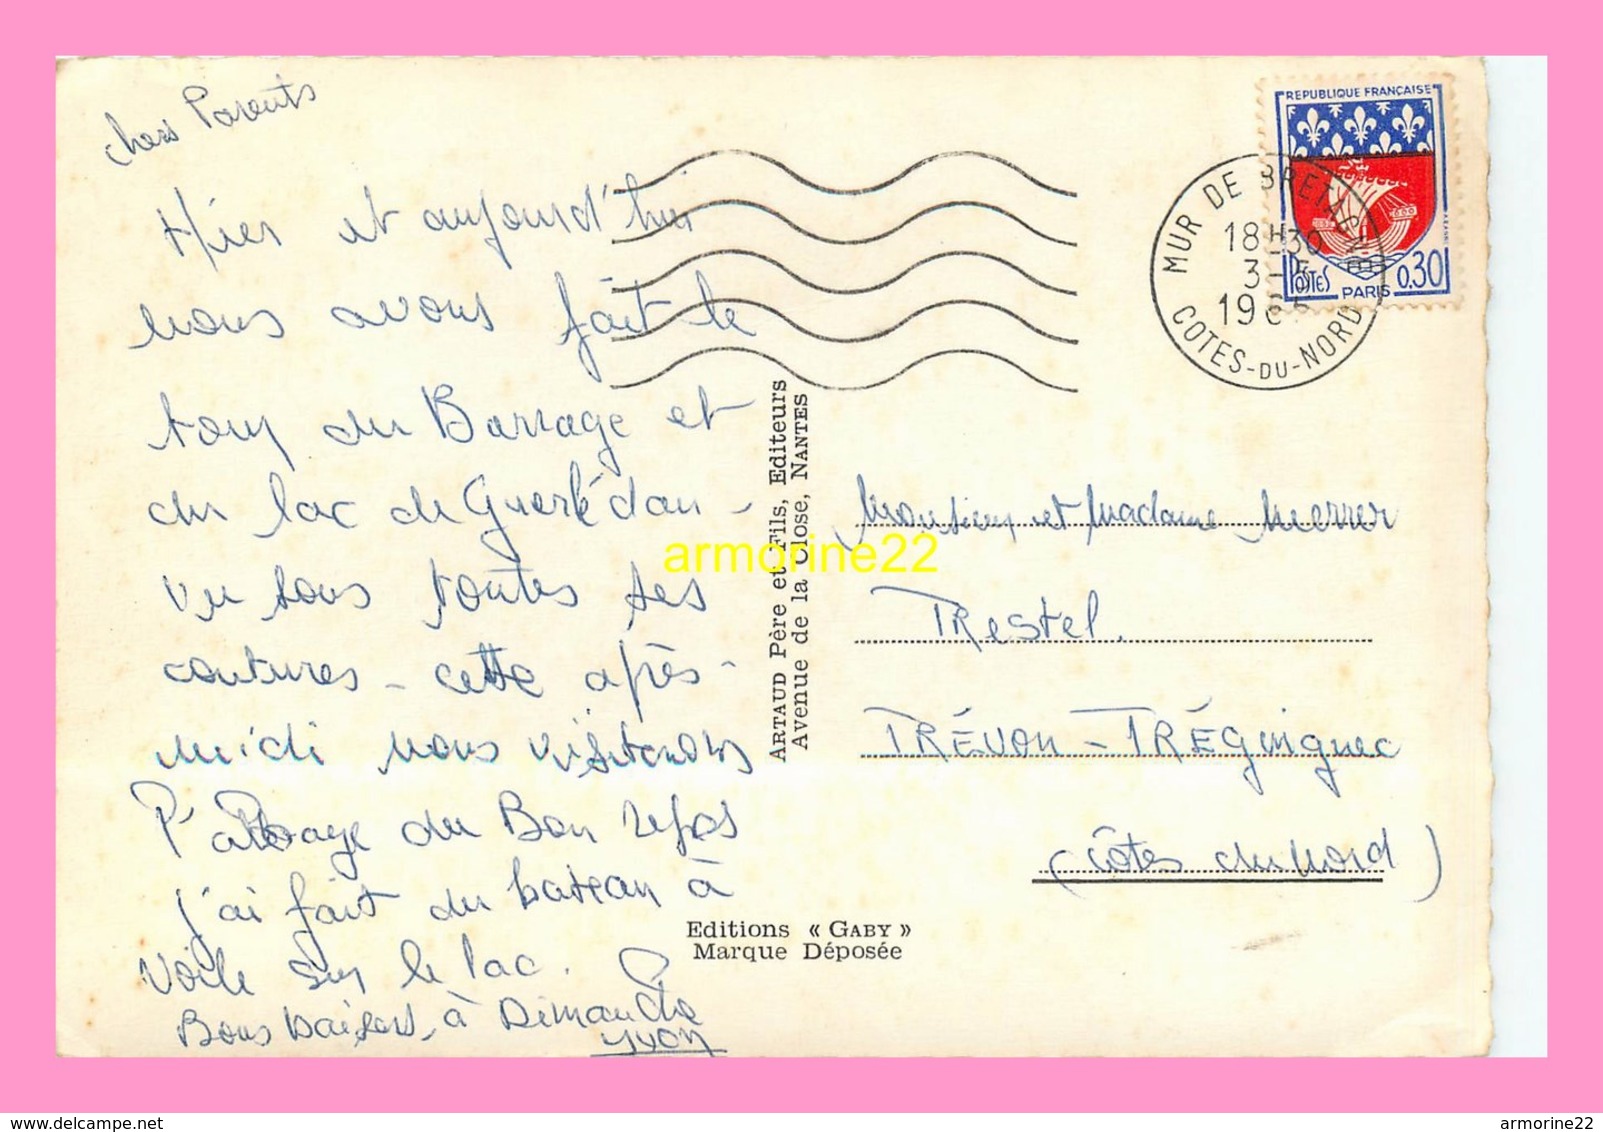 chers Parents
Hier et aujourd'hui
nous avons fait le
tour du Barrage et
du lac de Guerlédan -
vu sous toutes ses
coutures - cette après-
midi nous visiterons
l'abbaye du Bon repos
j'ai fait du bateau à
voile sur le lac.
Bons baisers, à Dimanche
Yvon
ARTAUD Père et Fils, Editeurs
Avenue de la Close, NANTES
Editions « GABY »
Marque Déposée
REPUBLIQUE FRANÇAISE
POSTES PARIS 0,30
MUR DE BRETAGNE
18H30
3-5
196
COTES-DU-NORD
Monsieur et Madame Merrer
Trestel.
TRÉVOU-TRÉGuignec
(Côtes du Nord)
armorine22
https://www.delcampe.net
armorine22